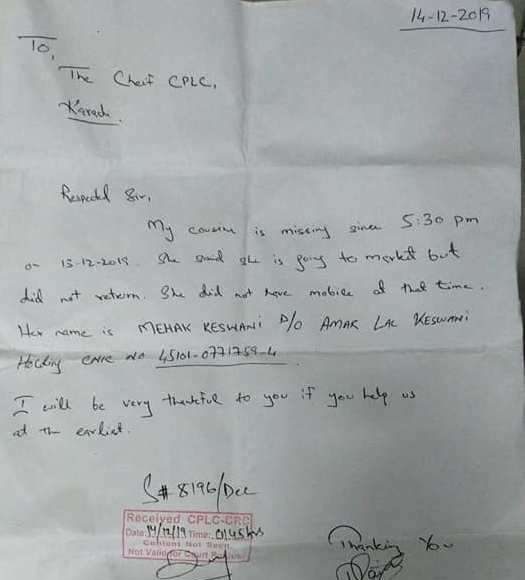 14-12-2019
To,
The Cheif CPLC,
Karachi.
Respected Sir,
My cousin is missing since 5:30 pm
on 13-12-2019. She said she is going to market but
did not return. She did not have mobile at that time.
Her name is MEHAK KESWANI D/O AMAR LAL KESWANI
Holding CNIC No 45101-0771759-4.
I will be very thankful to you if you help us
at the earliest.
S# 8196/Dec
Received CPLC-CRC
Date: 14/12/19 Time: 0145 hrs
Content Not Seen
Not Valid for Court
Thanking You